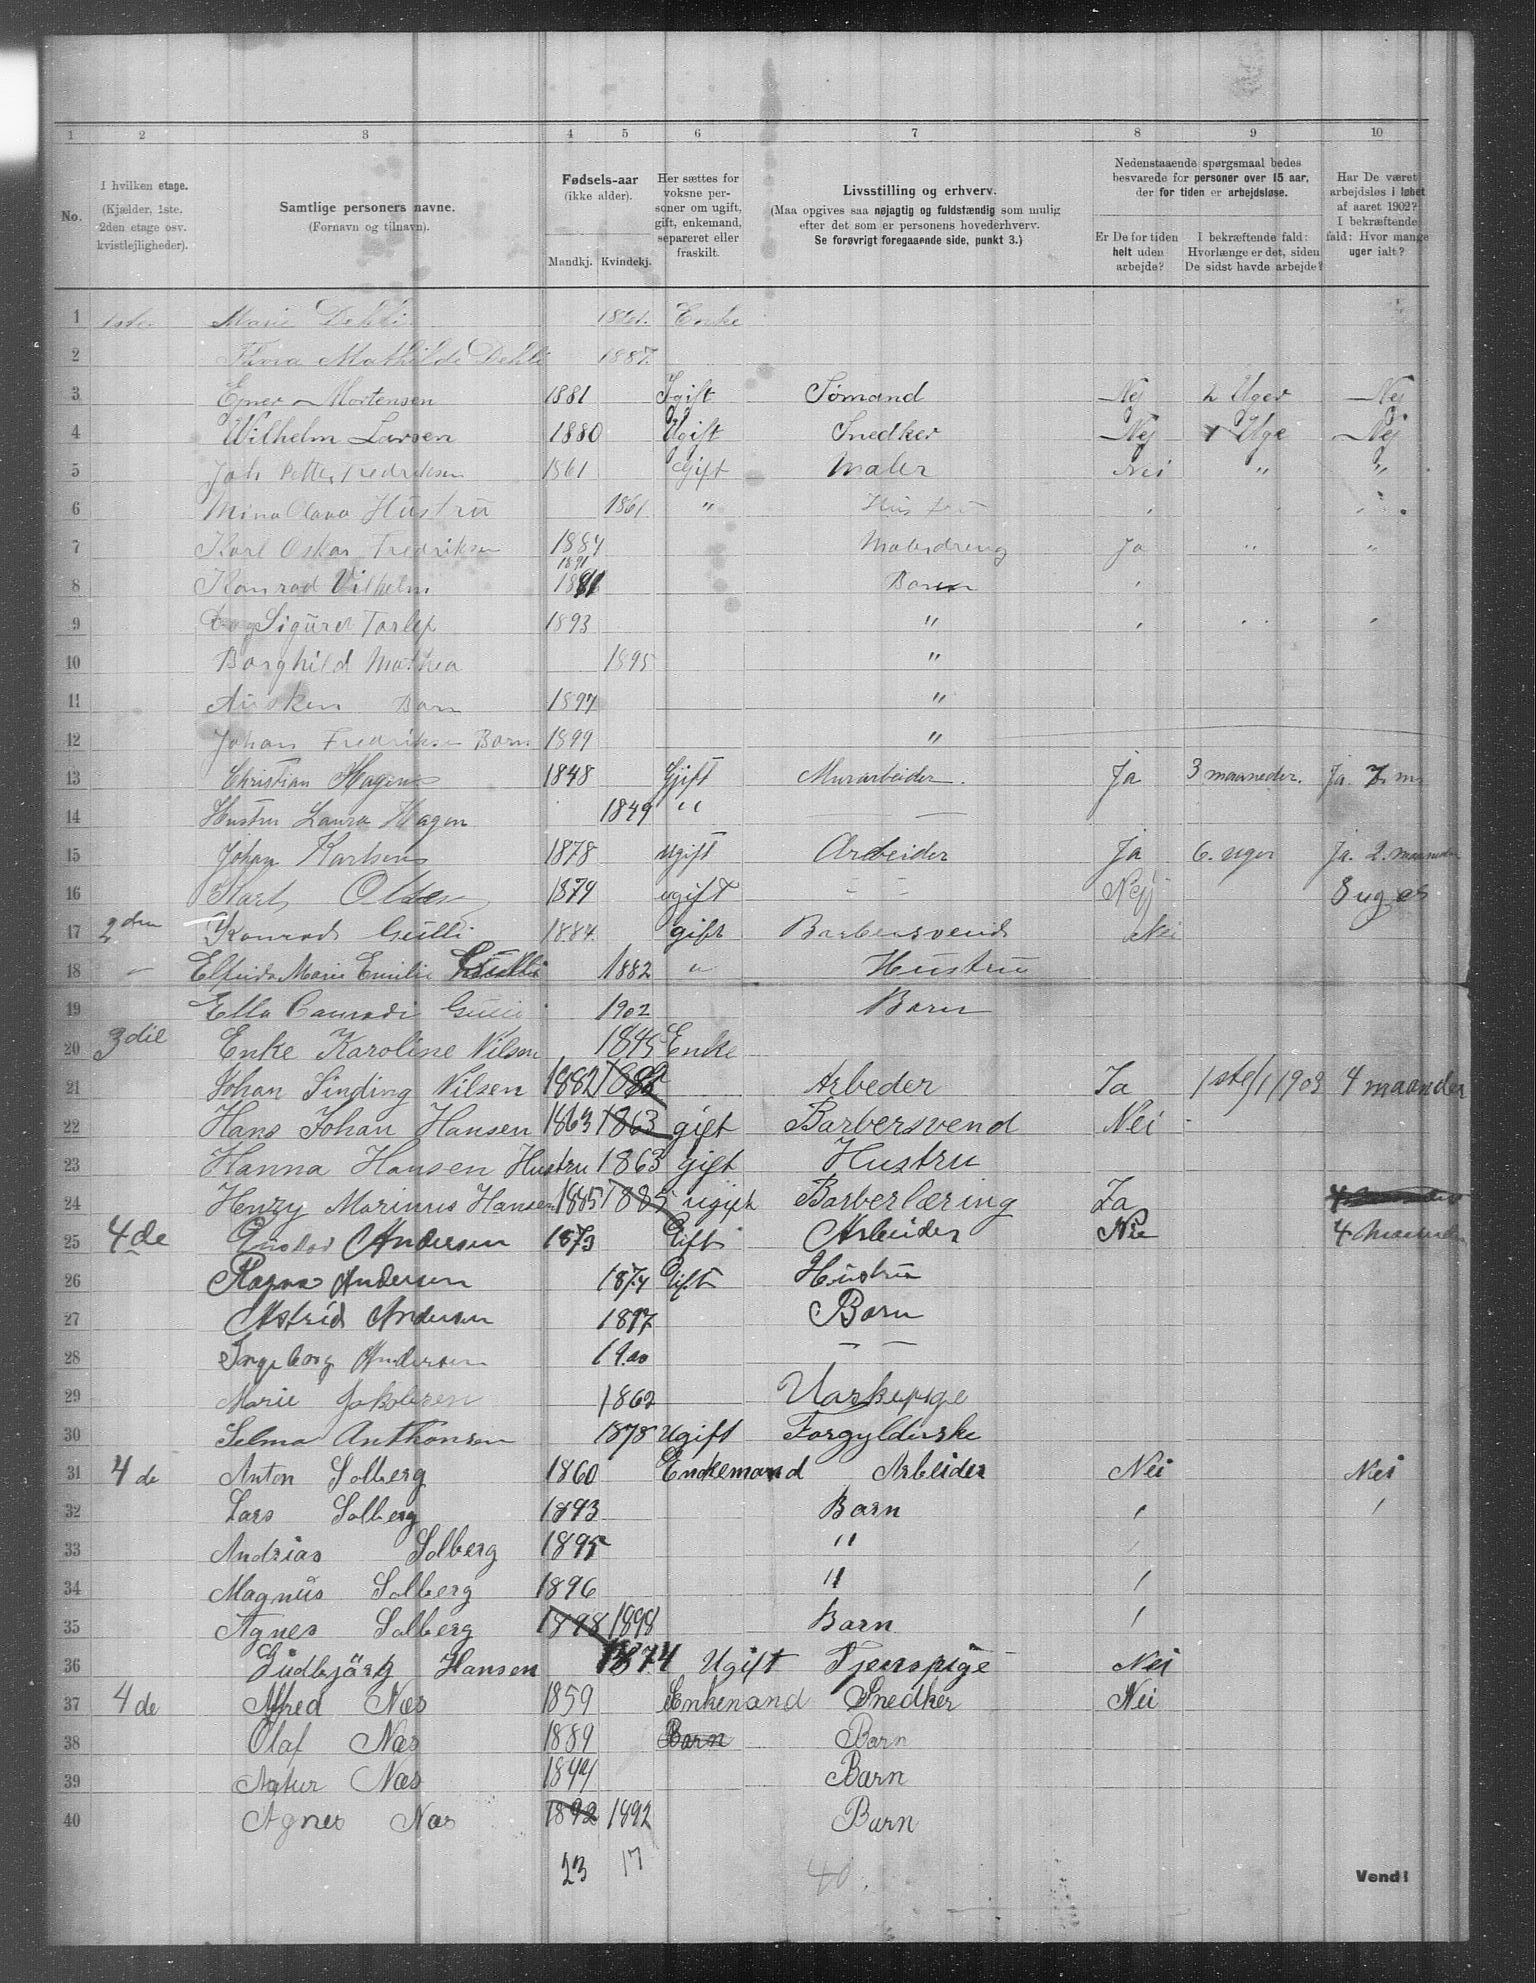 1 2 3 4 5 6 7 8 9 10
No.
I hvilken etage.
(Kjælder, 1ste. 2den etage osv. kvistlejligheder).
Samtlige personers navne.
(Fornavn og tilnavn).
Fødsels-aar
(ikke alder).
Mandkj. Kvindekj.
Her sættes for voksne personer om ugift, gift, enkemand, separeret eller fraskilt.
Livsstilling og erhverv.
(Maa opgives saa nøjagtig og fuldstændig som mulig efter det som er personens hovederhverv. Se forøvrigt foregaaende side, punkt 3.)
Nedenstaaende spørgsmaal bedes besvarede for personer over 15 aar, der for tiden er arbejdsløse.
Er De for tiden helt uden arbejde?
I bekræftende fald: Hvorlænge er det, siden De sidst havde arbejde?
Har De været arbejdsløs i løbet af aaret 1902? I bekræftende fald: Hvor mange uger ialt?
1 1ste Marie Dehli 1861. Enke
2 Thora Mathilde Dehli 1887.
3 Ejner Mortensen 1881 Ugift Sømand Nej 2 Uger Nej
4 Wilhelm Larsen 1880 Ugift Snedker Nej 1 Uge Nej
5 Joh Petter Fredriksen 1861 Gift Maler Nei " "
6 Mina Olava Hustru 1861 " Hustru
7 Karl Oskar Fredriksen 1884 Malerdreng Ja " "
8 Konrad Vilhelm 1891 Barn
9 Sigurd Torlef 1893 "
10 Borghild Mathea 1895 "
11 Barn 1897 "
12 Johan Fredriksen Barn 1899 "
13 Christian Hagen 1848 Gjift Murarbeider. Ja 3 maaneder. Ja. 7 m
14 Hustru Laura Hagen 1849 "
15 Johan Karlsen 1878 ugift Arbeider Ja 6. uger Ja. 2. maaneder
16 Karl Olsen 1879 ugift " " Nej 8 uger
17 2den Konrad Gulli 1884. gift Barbersvend Nei
18 " Elfrida Marie Emilie Gulli 1882 " Hustru
19 Ella Conradi Gulli 1902 Barn
20 3die Enke Karoline Nilsen 1845 Enke
21 Johan Sinding Nilsen 1882 Arbeder Ja 1ste/1 1903 4 maander
22 Hans Johan Hansen 1863 1863 gift Barbersvend Nei
23 Hanna Hansen Hustru 1863 gift Hustru
24 Henry Marinus Hansen 1885 1885 ugift Barberlæring Ja
25 4de Gustav Andersen 1873 Gift Arbeider Nei 4 Maaneder
26 Ragna Andersen 1874 Gift Hustru
27 Astrid Andersen 1897 Barn
28 Ingeborg Andersen 1900 " "
29 Marie Jakobsen 1862 Vaskepige
30 Selma Anthonsen 1878 Ugift Forgylderske
31 4de Anton Solberg 1860 Enkemand Arbeider Nei Nei
32 Lars Solberg 1893 Barn " "
33 Andrias Solberg 1895 "
34 Magnus Solberg 1896 " "
35 Agnes Solberg 1898 1898 Barn "
36 Gudbjørg Hansen 1874 Ugift Tjenspige Nei
37 4de Alfred Næs 1859 Enkemand Snedker Nei
38 Olaf Næs 1889 Barn Barn
39 Næs Barn
40 Agnes Næs 1892 1892 Barn
23 17 40.
Vend!